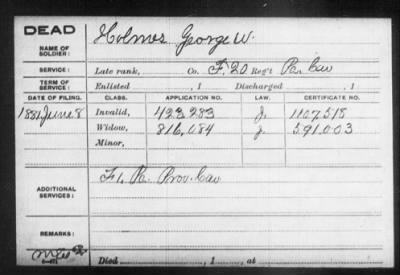 DEAD
NAME OF SOLDIER: Holmes, George W.
SERVICE: Late rank, Co. F, 20 Reg't Pa. Cav
TERM OF SERVICE: Enlisted , 1 Discharged , 1
DATE OF FILING. CLASS. APPLICATION NO. LAW. CERTIFICATE NO.
1881 June 8 Invalid, 423283 J. 1107518
Widow, 816,084 J. 591003
Minor,
ADDITIONAL SERVICES: F 1, Pa. Prov. Cav
REMARKS:
Died , 1 , at